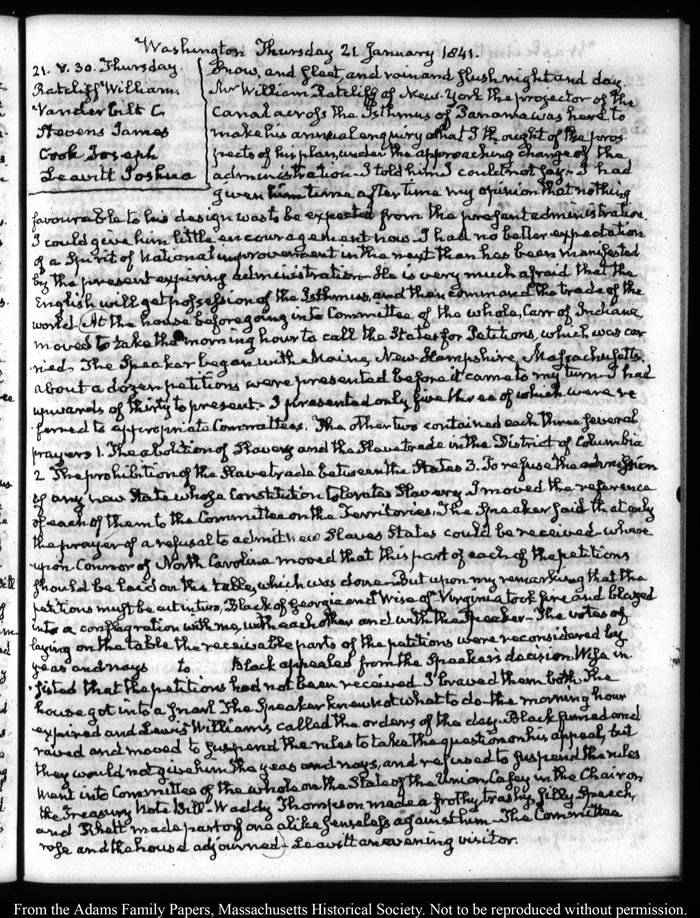 Washington Thursday 21 January 1841.
21. V. 30. Thursday
Ratcliff William
Vanderbilt C.
Stevens James
Cook Joseph
Leavitt Joshua
Snow, and sleet, and rain and slush night and day.
Mr William Ratcliff of New-York the projector of the
Canal across the Isthmus of Panama was here to
make his annual enquiry what I thought of the pros-
pects of his plan, under the approaching change of the
administration. I told him I could not say. I had
given him time after time my opinion that nothing
favourable to his design was to be expected from the present administration.
I could give him little encouragement now. I had no better expectation
of a Spirit of National improvement in the next than has been manifested
by the present expiring administration. He is very much afraid that the
English will get possession of the Isthmus, and then command the trade of the
world. At the house before going into Committee of the whole, Carr of Indiana,
moved to take the morning hour to call the States for Petitions, which was car-
ried. The Speaker began with Maine, New Hampshire, Massachusetts.
about a dozen petitions were presented before it came to my turn. I had
upwards of thirty to present. I presented only five three of which were re-
ferred to appropriate Committees. The other two contained each three several
prayers 1. The abolition of Slavery and the Slave trade in the District of Columbia
2 The prohibition of the Slave trade between the States 3. To refuse the admission
of any new State whose Constitution tolerates Slavery. I moved the reference
of each of them to the Committee on the Territories. The Speaker said that only
the prayer of a refusal to admit new Slave States could be received, where-
upon Connor of North Carolina moved that this part of each of the petitions
should be laid on the table, which was done. But upon my remarking that the
petitions must be cut in two, Black of Georgia and Wise of Virginia took fire and blazed
into a conflagration with me, with each other and with the Speaker. The votes of
laying on the table the receivable parts of the petitions were reconsidered by
yeas and nays to Black appealed from the Speaker's decision Wise in-
sisted that the petitions had not been received I braved them both. The
house got into a snarl. The Speaker knew not what to do the morning hour
expired and Lewis Williams called the orders of the day. Black fumed and
raved and moved to suspend the rules to take the question on his appeal, but
they would not give him the yeas and nays, and refused to suspend the rules
Went into Committee of the whole on the State of the Union Casey in the Chair on
the Treasury Note Bill. Waddy Thompson made a frothy, trashy, silly Speech,
and Rhett made part of one alike senseless against him. The Committee
rose and the house adjourned. Leavitt an evening visitor.
From the Adams Family Papers, Massachusetts Historical Society. Not to be reproduced without permission.